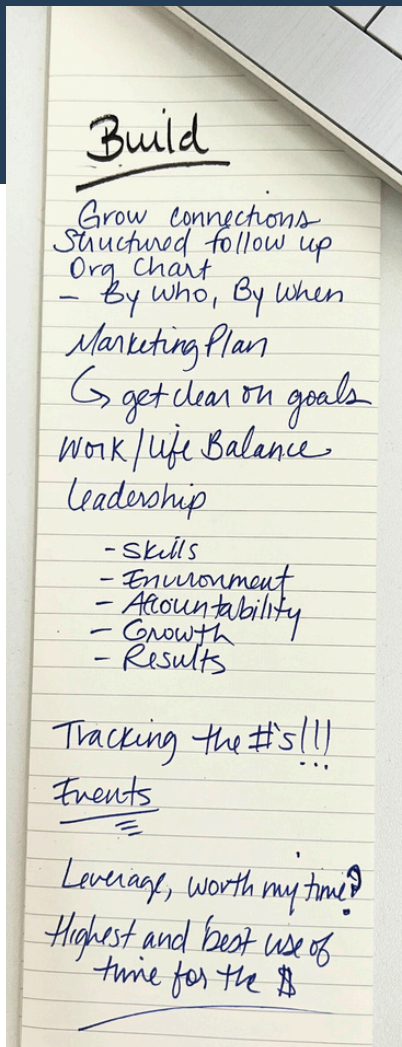 Build
Grow connections
Structured follow up
Org Chart
- By Who, By When
Marketing Plan
↳ get clear on goals
Work/Life Balance
Leadership
- Skills
- Environment
- Accountability
- Growth
- Results
Tracking the #'s!!!
Events
Leverage, worth my time?
Highest and best use of
time for the $